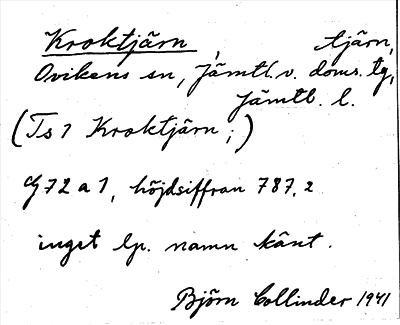 Kroktjärn, tjärn,
Ovikens sn, Jämtl. v. doms. tg,
Jämtl. l.
(Ts 1 Kroktjärn;)
G 72 a 1, höjdsiffran 787,2
inget lp. namn känt.
Björn Collinder 1941